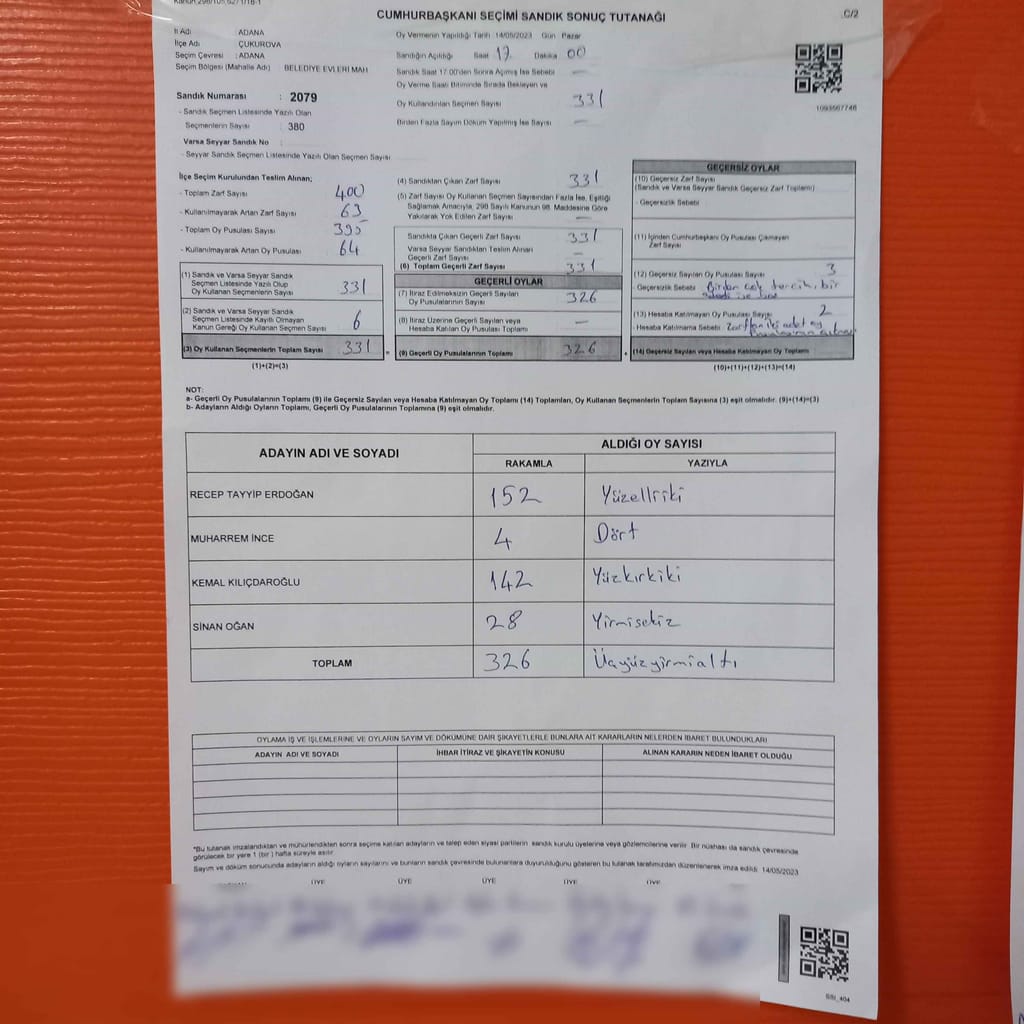 CUMHURBAŞKANI SEÇİMİ SANDIK SONUÇ TUTANAĞI
C/2
İl Adı : ADANA
İlçe Adı : ÇUKUROVA
Seçim Çevresi : ADANA
Seçim Bölgesi (Mahalle Adı) BELEDİYE EVLERİ MAH
Sandık Numarası : 2079
- Sandık Seçmen Listesinde Yazılı Olan
Seçmenlerin Sayısı : 380
Varsa Seyyar Sandık No :
- Seyyar Sandık Seçmen Listesinde Yazılı Olan Seçmen Sayısı
Oy Vermenin Yapıldığı Tarih 14/05/2023 Gün Pazar
Sandığın Açıldığı Saat 17 Dakika 00
Sandık Saat 17.00'den Sonra Açılmış İse Sebebi —
Oy Verme Saati Bitiminde Sırada Bekleyen ve
Oy Kullandırılan Seçmen Sayısı 331
Birden Fazla Sayım Döküm Yapılmış İse Sayısı —
1093567746
İlçe Seçim Kurulundan Teslim Alınan;
- Toplam Zarf Sayısı 400
- Kullanılmayarak Artan Zarf Sayısı 63
- Toplam Oy Pusulası Sayısı 395
- Kullanılmayarak Artan Oy Pusulası 64
(1) Sandık ve Varsa Seyyar Sandık
Seçmen Listesinde Yazılı Olup
Oy Kullanan Seçmenlerin Sayısı 331
(2) Sandık ve Varsa Seyyar Sandık
Seçmen Listesinde Kayıtlı Olmayan
Kanun Gereği Oy Kullanan Seçmen Sayısı 6
(3) Oy Kullanan Seçmenlerin Toplam Sayısı 331
(1)+(2)=(3)
(4) Sandıktan Çıkan Zarf Sayısı 331
(5) Zarf Sayısı Oy Kullanan Seçmen Sayısından Fazla İse, Eşitliği
Sağlamak Amacıyla, 298 Sayılı Kanunun 98. Maddesine Göre
Yakılarak Yok Edilen Zarf Sayısı —
Sandıkta Çıkan Geçerli Zarf Sayısı 331
Varsa Seyyar Sandıktan Teslim Alınan
Geçerli Zarf Sayısı —
(6) Toplam Geçerli Zarf Sayısı 331
GEÇERLİ OYLAR
(7) İtiraz Edilmeksizin Geçerli Sayılan
Oy Pusulalarının Sayısı 326
(8) İtiraz Üzerine Geçerli Sayılan veya
Hesaba Katılan Oy Pusulası Toplamı —
(9) Geçerli Oy Pusulalarının Toplamı 326
GEÇERSİZ OYLAR
(10) Geçersiz Zarf Sayısı
(Sandık ve Varsa Seyyar Sandık Geçersiz Zarf Toplamı)
- Geçersizlik Sebebi
(11) İçinden Cumhurbaşkanı Oy Pusulası Çıkmayan
Zarf Sayısı
(12) Geçersiz Sayılan Oy Pusulası Sayısı 3
- Geçersizlik Sebebi Birden çok tercih, bir
(13) Hesaba Katılmayan Oy Pusulası Sayısı 2
- Hesaba Katılmama Sebebi Zarftan iki adet oy
(14) Geçersiz Sayılan veya Hesaba Katılmayan Oy Toplamı
(10)+(11)+(12)+(13)=(14)
NOT:
a- Geçerli Oy Pusulalarının Toplamı (9) ile Geçersiz Sayılan veya Hesaba Katılmayan Oy Toplamı (14) Toplamları, Oy Kullanan Seçmenlerin Toplam Sayısına (3) eşit olmalıdır. (9)+(14)=(3)
b- Adayların Aldığı Oyların Toplamı, Geçerli Oy Pusulalarının Toplamına (9) eşit olmalıdır.
ADAYIN ADI VE SOYADI ALDIĞI OY SAYISI
RAKAMLA YAZIYLA
RECEP TAYYİP ERDOĞAN 152 Yüzelliiki
MUHARREM İNCE 4 Dört
KEMAL KILIÇDAROĞLU 142 Yüzkırkiki
SİNAN OĞAN 28 Yirmisekiz
TOPLAM 326 Üçyüzyirmialtı
OYLAMA İŞ VE İŞLEMLERİNE VE OYLARIN SAYIM VE DÖKÜMÜNE DAİR ŞİKAYETLERLE BUNLARA AİT KARARLARIN NELERDEN İBARET BULUNDUKLARI
ADAYIN ADI VE SOYADI İHBAR İTİRAZ VE ŞİKAYETİN KONUSU ALINAN KARARIN NEDEN İBARET OLDUĞU
*Bu tutanak imzalandıktan ve mühürlendikten sonra seçime katılan adayların ve talep eden siyasi partilerin sandık kurulu üyelerine veya gözlemcilerine verilir. Bir nüshası da sandık çevresinde
görülecek bir yere 1 (bir) hafta süreyle asılır.
Sayım ve döküm sonucunda adayların aldığı oyların sayılarını ve bunların sandık çevresinde bulunanlara duyurulduğunu gösteren bu tutanak tarafımızdan düzenlenerek imza edildi. 14/05/2023
ÜYE ÜYE ÜYE ÜYE ÜYE
SSI_404